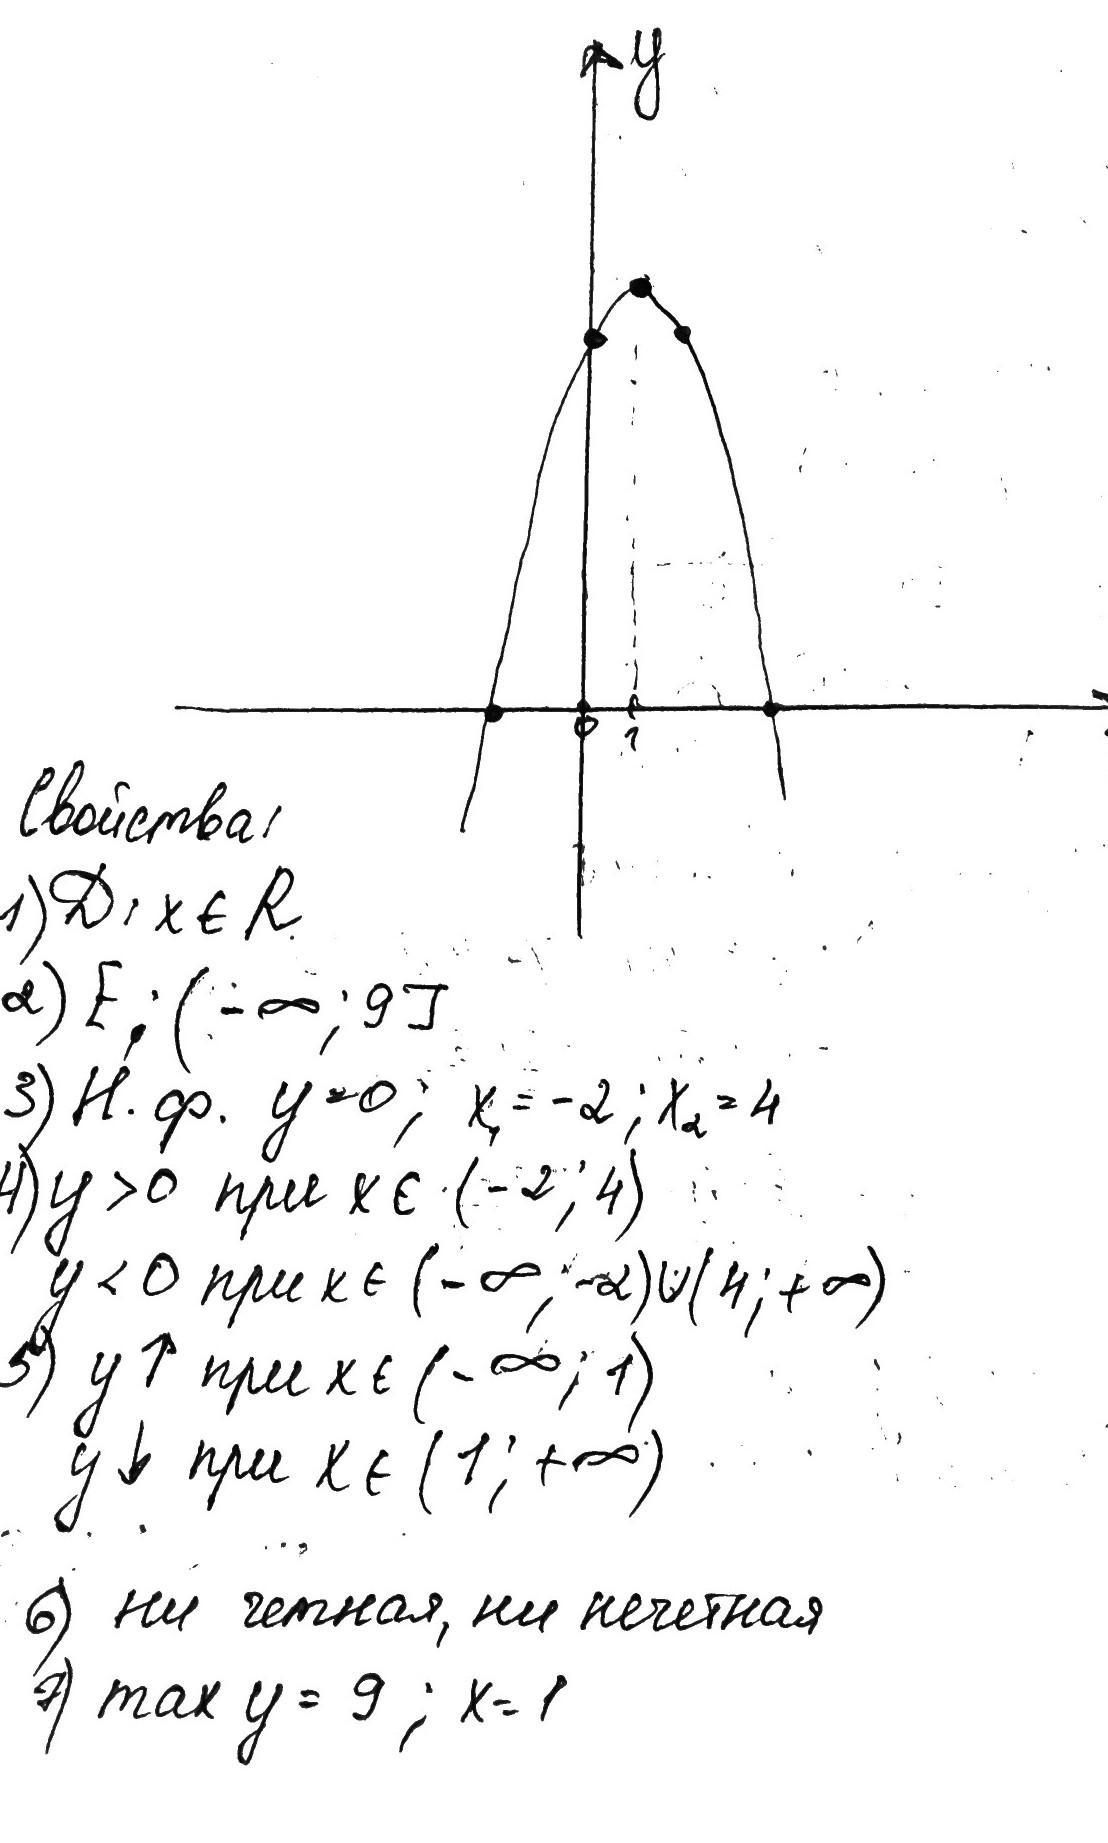 y
0 1
Свойства:
1) D: x ∈ R
2) E: (-∞; 9]
3) Н.ф. y=0; x₁=-2; x₂=4
4) y>0 при x ∈ (-2; 4)
y<0 при x ∈ (-∞; -2)∪(4; +∞)
5) y↑ при x ∈ (-∞; 1)
y↓ при x ∈ (1; +∞)
6) ни четная, ни нечетная
7) max y = 9; x=1